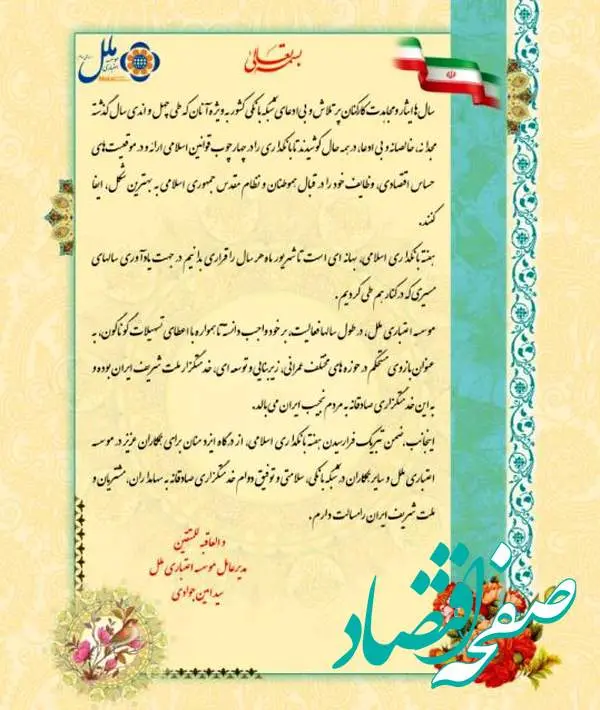 بسمه تعالی
موسسه اعتباری
ملل
سال‌ها ایثار و مجاهدت کارکنان پرتلاش و بی ادعای شبکه بانکی کشور به ویژه آنان که طی چهل و اندی سال گذشته
مجدانه، خالصانه و بی ادعا، در همه حال کوشیدند تا بانکداری را در چهارچوب قوانین اسلامی ارائه و در موقعیت‌های
حساس اقتصادی، وظایف خود را در قبال هموطنان و نظام مقدس جمهوری اسلامی به بهترین شکل، ایفا
کنند.
هفته بانکداری اسلامی، بهانه ای است تا شهریور ماه هر سال را قراری بدانیم در جهت یادآوری سالهای
مسیری که در کنار هم طی کردیم.
موسسه اعتباری ملل، در طول سالها فعالیت، بر خود واجب دانسته تا همواره با اعطای تسهیلات گوناگون، به
عنوان بازوی مستحکم در حوزه های مختلف عمرانی، زیربنایی و توسعه ای، خدمتگزار ملت شریف ایران بوده و
به این خدمتگزاری صادقانه به مردم نجیب ایران می‌بالد.
اینجانب، ضمن تبریک فرارسیدن هفته بانکداری اسلامی، از درگاه ایزد منان برای همکاران عزیز در موسسه
اعتباری ملل و سایر همکاران در شبکه بانکی، سلامتی و توفیق دوام خدمتگزاری صادقانه به سهامداران، مشتریان و
ملت شریف ایران را مسالت دارم.
و العاقبه للمتقین
مدیرعامل موسسه اعتباری ملل
سید امین جوادی
صفحه اقتصاد